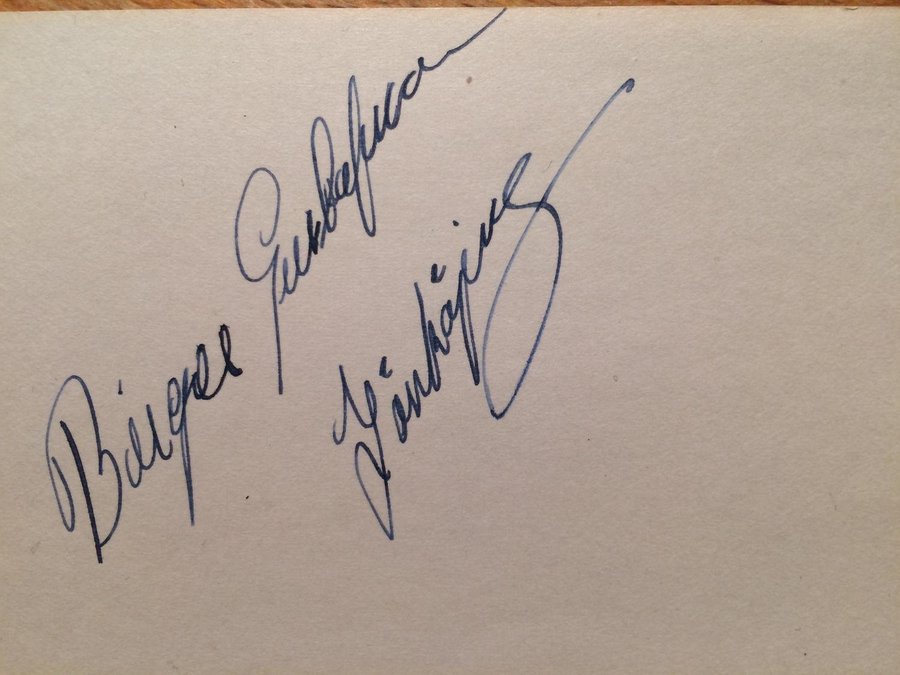 Birger Gustafsson
Jönköping